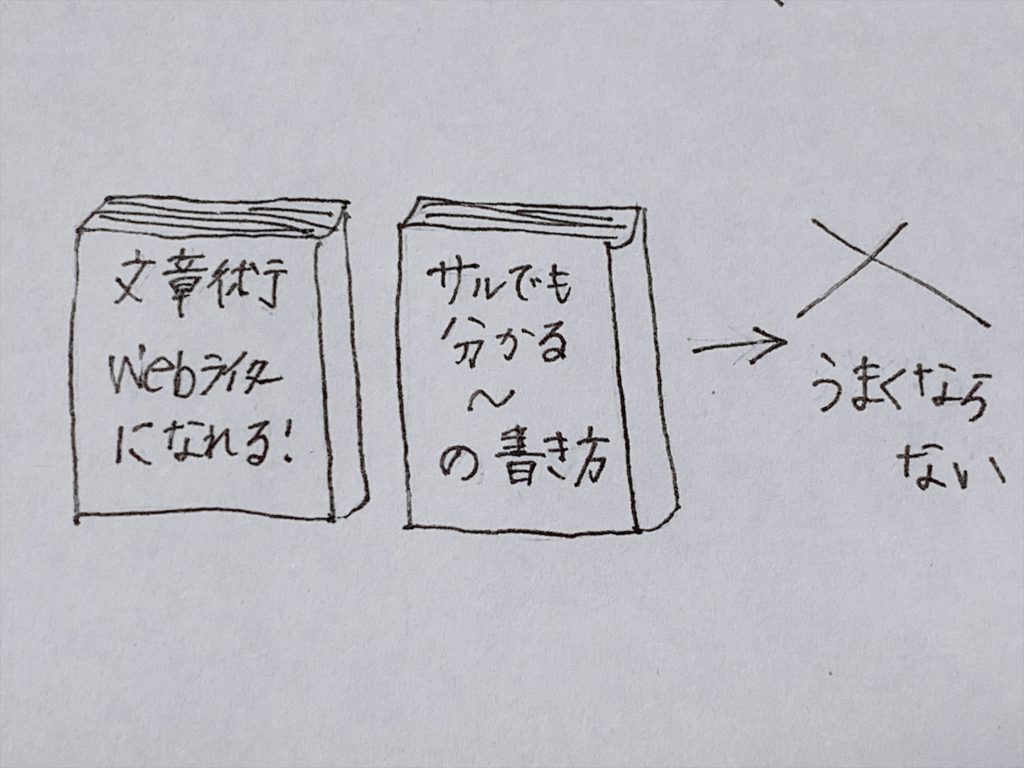 文章術
Webライター
になれる!
サルでも
分かる
〜
の書き方
→
×
うまくなら
ない